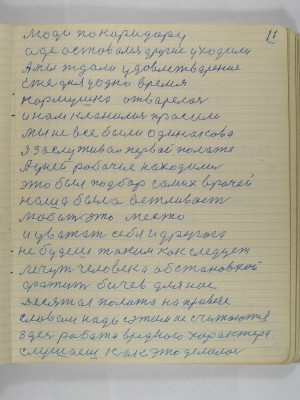 11
Люди по коридору
а где оставался другие уходили
А мы ждали удовлетварение
Ежедня уодно время
кормушка отварелоя
и нам кланилия просили
Мы не все были одинакова
Я заслуживал первой полате
А у ней рабочие находили
это был подбор самих врачей
наша была ветливаст
любить это место
и уважат себя и другога
не будеш таким как следует
лечут человека обстановкой
хватит бичев для нас
Десятая полата на примере
словам надо с этим не считаются
здес работа вредного характера
слушаеш как это делалоя